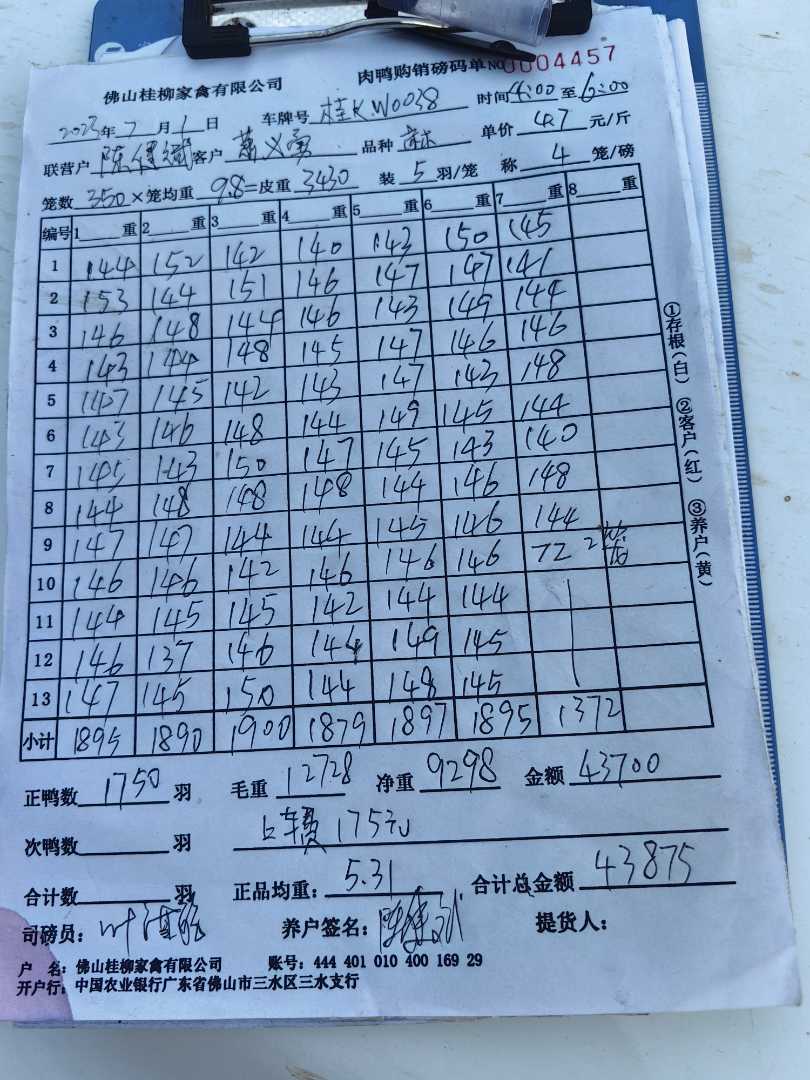 佛山桂柳家禽有限公司 肉鸭购销磅码单 NO 0004457
2023年 7 月 1 日 车牌号 桂K.W0038 时间 4:00 至 6:00
联营户 客户 品种 单价 4.7 元/斤
笼数 350 ×笼均重 9.8 =皮重 3430 装 5 羽/笼 称 4 笼/磅
编号 1 重 2 重 3 重 4 重 5 重 6 重 7 重 8 重
1 144 152 142 140 143 150 145
2 153 144 151 146 147 147 141
3 146 148 144 146 143 149 144
4 143 144 148 145 147 146 146
5 147 145 142 143 147 143 148
6 143 146 148 144 149 145 144
7 145 143 150 147 145 143 140
8 144 148 148 148 144 146 148
9 147 147 144 144 145 146 144
10 146 146 142 146 146 146 72 2
11 144 145 145 142 144 144
12 146 137 146 144 149 145
13 147 145 150 144 148 145
小计 1895 1890 1900 1879 1897 1895 1372
①存根(白) ②客户(红) ③养户(黄)
正鸭数 1750 羽 毛重 12728 净重 9298 金额 43700
次鸭数 羽 上车费 175元
合计数 羽 正品均重: 5.31 合计总金额 43875
司磅员: 养户签名: 提货人:
户 名: 佛山桂柳家禽有限公司 账号: 444 401 010 400 169 29
开户行: 中国农业银行广东省佛山市三水区三水支行